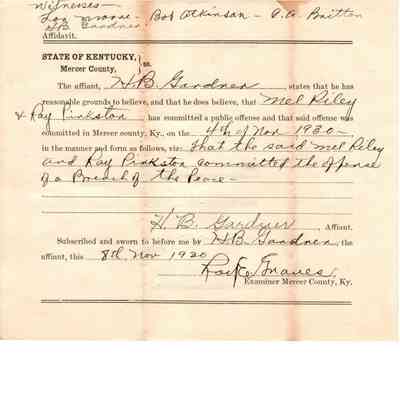 Witnesses-
Loy Moore - Bob Atkinson - A. A. Britton
H.B. Gardner.
Affidavit.
STATE OF KENTUCKY,
Mercer County, } ss.
The affiant, H.B. Gardner, states that he has
reasonable grounds to believe, and that he does believe, that Mel Riley
& Ray Pinkston has committed a public offense and that said offense was
committed in Mercer county, Ky., on the 4th of Nov 1920-
in the manner and form as follows, viz: That the said Mel Riley
and Ray Pinkston committed the offense
of a Breach of the Peace-
H. B. Gardner, Affiant.
Subscribed and sworn to before me by H.B. Gardner, the
affiant, this 8th Nov 1920
Graves,
Examiner Mercer County, Ky.